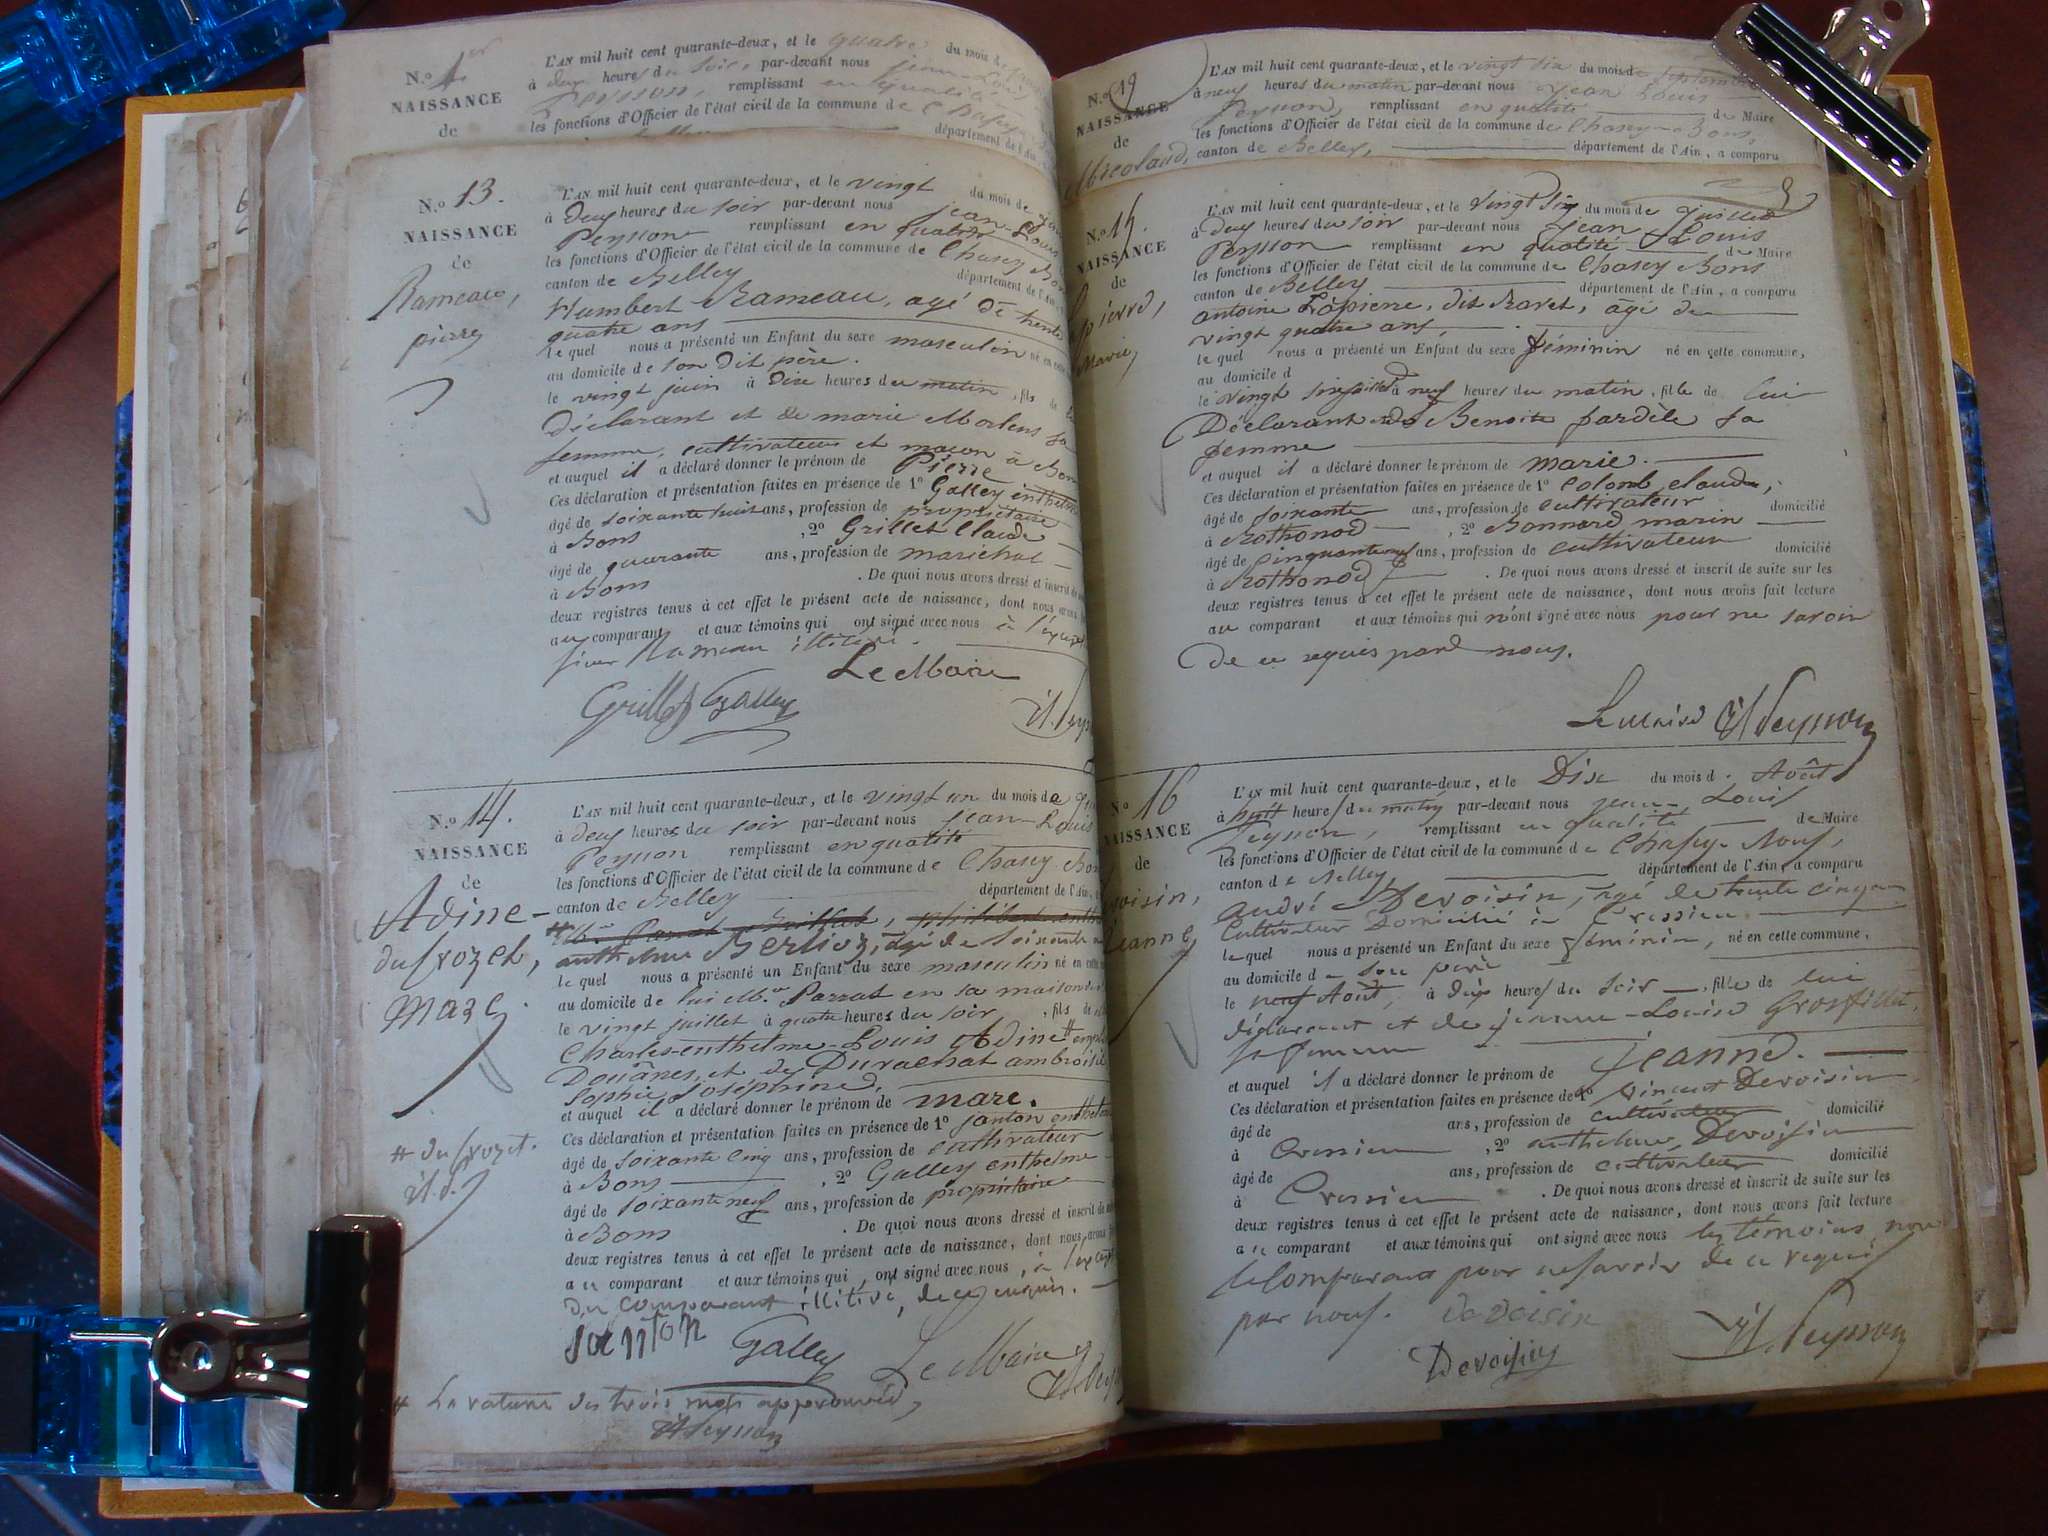 N.o 1er
NAISSANCE
de
L'AN mil huit cent quarante-deux, et le quatre du mois de
à deux heures du soir, par-devant nous jean-Louis
Peysson, remplissant en qualité
les fonctions d'Officier de l'état civil de la commune de Chasey
département de l'Ain
N.o 13.
NAISSANCE
de
Rameau,
pierre
L'AN mil huit cent quarante-deux, et le vingt du mois de
à deux heures du soir par-devant nous jean-Louis
Peysson remplissant en qualité
les fonctions d'Officier de l'état civil de la commune de Chasey Bons
canton de Belley département de l'Ain
Humbert Rameau, agé de trente
quatre ans
le quel nous a présenté un Enfant du sexe masculin né en cette
au domicile de son dit père.
le vingt juin à Dix heures du matin, fils de
déclarant et de marie Morlens sa
femme, cultivateur et maçon à Bons
et auquel il a déclaré donner le prénom de Pierre
Ces déclaration et présentation faites en présence de 1o Galley enthelme
âgé de soixante huit ans, profession de propriétaire
à Bons, 2o Grillet Claude
âgé de quarante ans, profession de maréchal
à Bons. De quoi nous avons dressé et inscrit de
deux registres tenus à cet effet le présent acte de naissance, dont nous avons
au comparant et aux témoins qui ont signé avec nous à l'
Rameau illitéré.
Le Maire
Grillet Galley
N.o 14.
NAISSANCE
de
Adine-
du frozet,
marc
# du frozet.
L'AN mil huit cent quarante-deux, et le vingt un du mois de
à deux heures du soir par-devant nous jean-Louis
Peysson remplissant en qualité
les fonctions d'Officier de l'état civil de la commune de Chasey Bons
canton de Belley département de l'Ain
anthelme Berlioz, agé de soixante
le quel nous a présenté un Enfant du sexe masculin né en cette
au domicile de lui Mr Parrat en sa maison
le vingt juillet à quatre heures du soir, fils de
Charles-enthelme-Louis Adine #
Douânes, et de Durachat ambroisie
Sophie Joséphine,
et auquel il a déclaré donner le prénom de marc.
Ces déclaration et présentation faites en présence de 1o janton enthelme
âgé de soixante cinq ans, profession de cultivateur
à Bons, 2o Galley enthelme
âgé de soixante neuf ans, profession de propriétaire
à Bons. De quoi nous avons dressé et inscrit de
deux registres tenus à cet effet le présent acte de naissance, dont nous avons
au comparant et aux témoins qui ont signé avec nous, à
du comparant illitéré, de ce enquis.
janton Galley Le Maire
# La rature des trois mots approuvée,
Peysson
N.o 19
NAISSANCE
de
L'AN mil huit cent quarante-deux, et le vingt six du mois de septembre
à neuf heures du matin par-devant nous Jean Louis
Peysson, remplissant en qualité de Maire
les fonctions d'Officier de l'état civil de la commune de Chasey-Bons,
canton de Belley, département de l'Ain, a comparu
N.o 15.
NAISSANCE
de
Marie
L'AN mil huit cent quarante-deux, et le vingt six du mois de Juillet
à deux heures du soir par-devant nous jean Louis
Peysson remplissant en qualité de Maire
les fonctions d'Officier de l'état civil de la commune de Chasey Bons
canton de Belley département de l'Ain, a comparu
antoine Lapierre, dit Ravet, agé de
vingt quatre ans,
le quel nous a présenté un Enfant du sexe féminin né en cette commune,
au domicile d
le vingt six juillet à neuf heures du matin, fille de lui
Déclarant et de Benoite Jardèle sa
femme
et auquel il a déclaré donner le prénom de marie.
Ces déclaration et présentation faites en présence de 1o Colomb claude,
âgé de soixante ans, profession de cultivateur domicilié
à Rothonod, 2o Bonnard marin
âgé de cinquante neuf ans, profession de cultivateur domicilié
à Rothonod. De quoi nous avons dressé et inscrit de suite sur les
deux registres tenus à cet effet le présent acte de naissance, dont nous avons fait lecture
au comparant et aux témoins qui n'ont signé avec nous pour ne savoir
de ce requis par nous.
Le maire Peysson
No 16
NAISSANCE
de
Jeanne
L'AN mil huit cent quarante-deux, et le Dix du mois d'Août
à huit heures du matin par-devant nous jean-Louis
Peysson, remplissant en qualité de Maire
les fonctions d'Officier de l'état civil de la commune de Chasey-Bons,
canton de Belley, département de l'Ain, a comparu
andré Devoisin, agé de trente cinq ans
Cultivateur Domicilié à Cressieu
le quel nous a présenté un Enfant du sexe féminin, né en cette commune,
au domicile de son père
le neuf Août, à dix heures du soir, fille de lui
déclarant et de jeanne-Louise Grosfillet,
sa femme
et auquel il a déclaré donner le prénom de jeanne.
Ces déclaration et présentation faites en présence de 1o vincent Devoisin
âgé de ans, profession de cultivateur domicilié
à Cressieu, 2o anthelme Devoisin
âgé de ans, profession de cultivateur domicilié
à Cressieu. De quoi nous avons dressé et inscrit de suite sur les
deux registres tenus à cet effet le présent acte de naissance, dont nous avons fait lecture
au comparant et aux témoins qui ont signé avec nous les témoins, non
le Comparant pour ne savoir de ce requis
par nous. devoisin
Devoisin Peysson